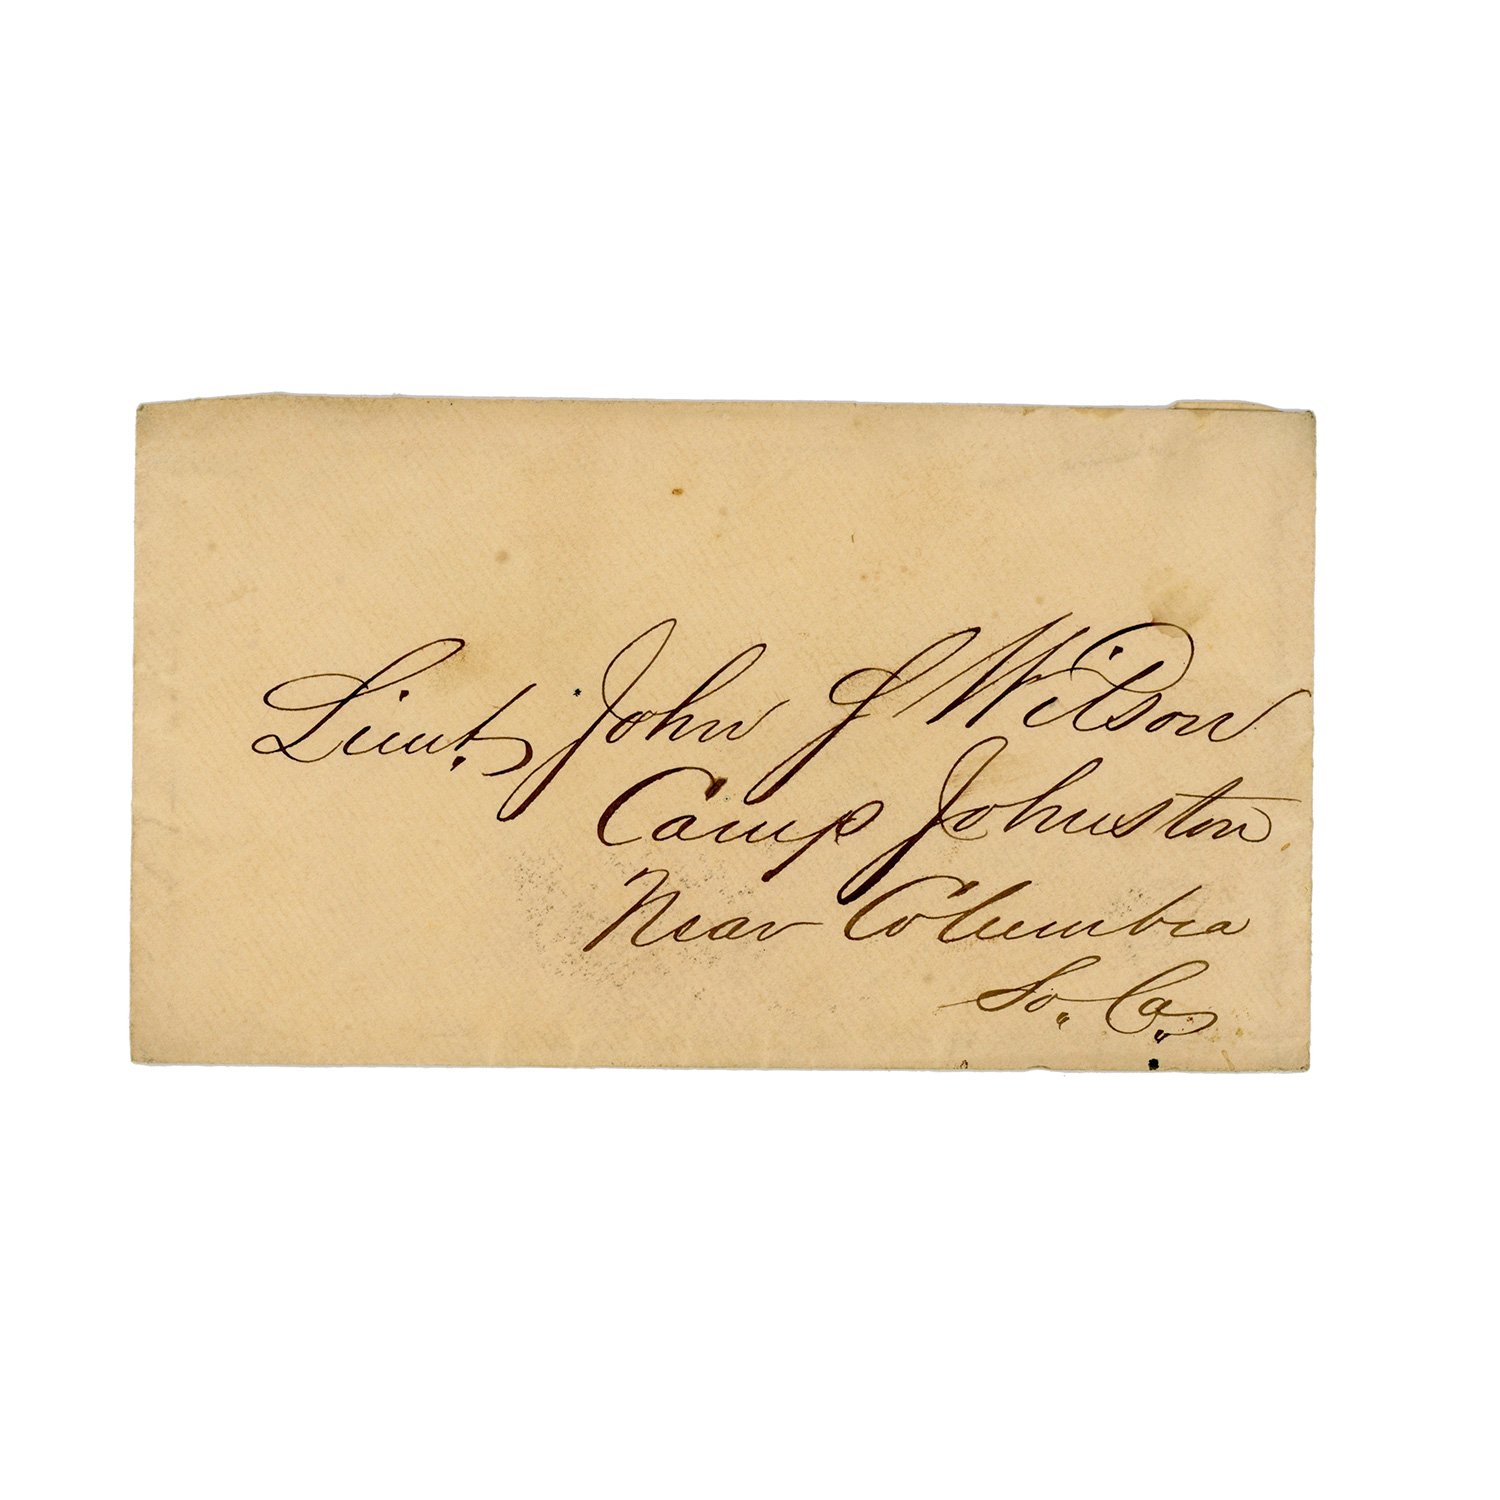 Lieut. John S Wilson
Camp Johnston
Near Columbia
So. Ca.